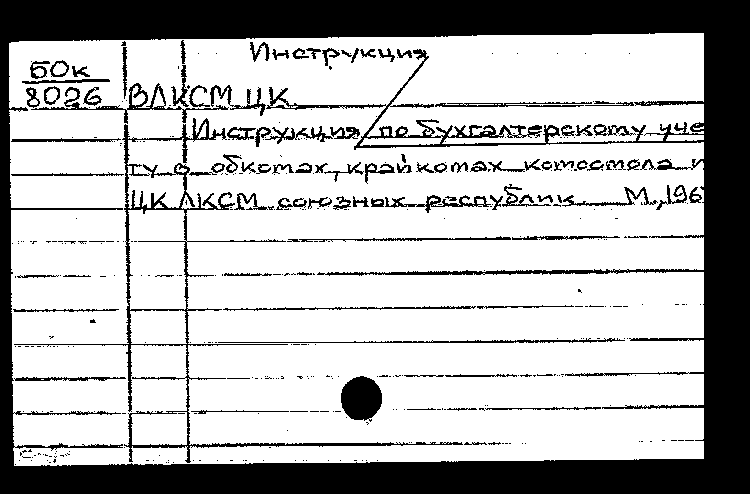 Инструкция
БОк
8026 ВЛКСМ ЦК
Инструкция по бухгалтерскому уче
ту в обкомах, крайкомах комсомола и
ЦК ЛКСМ союзных республик М.,196